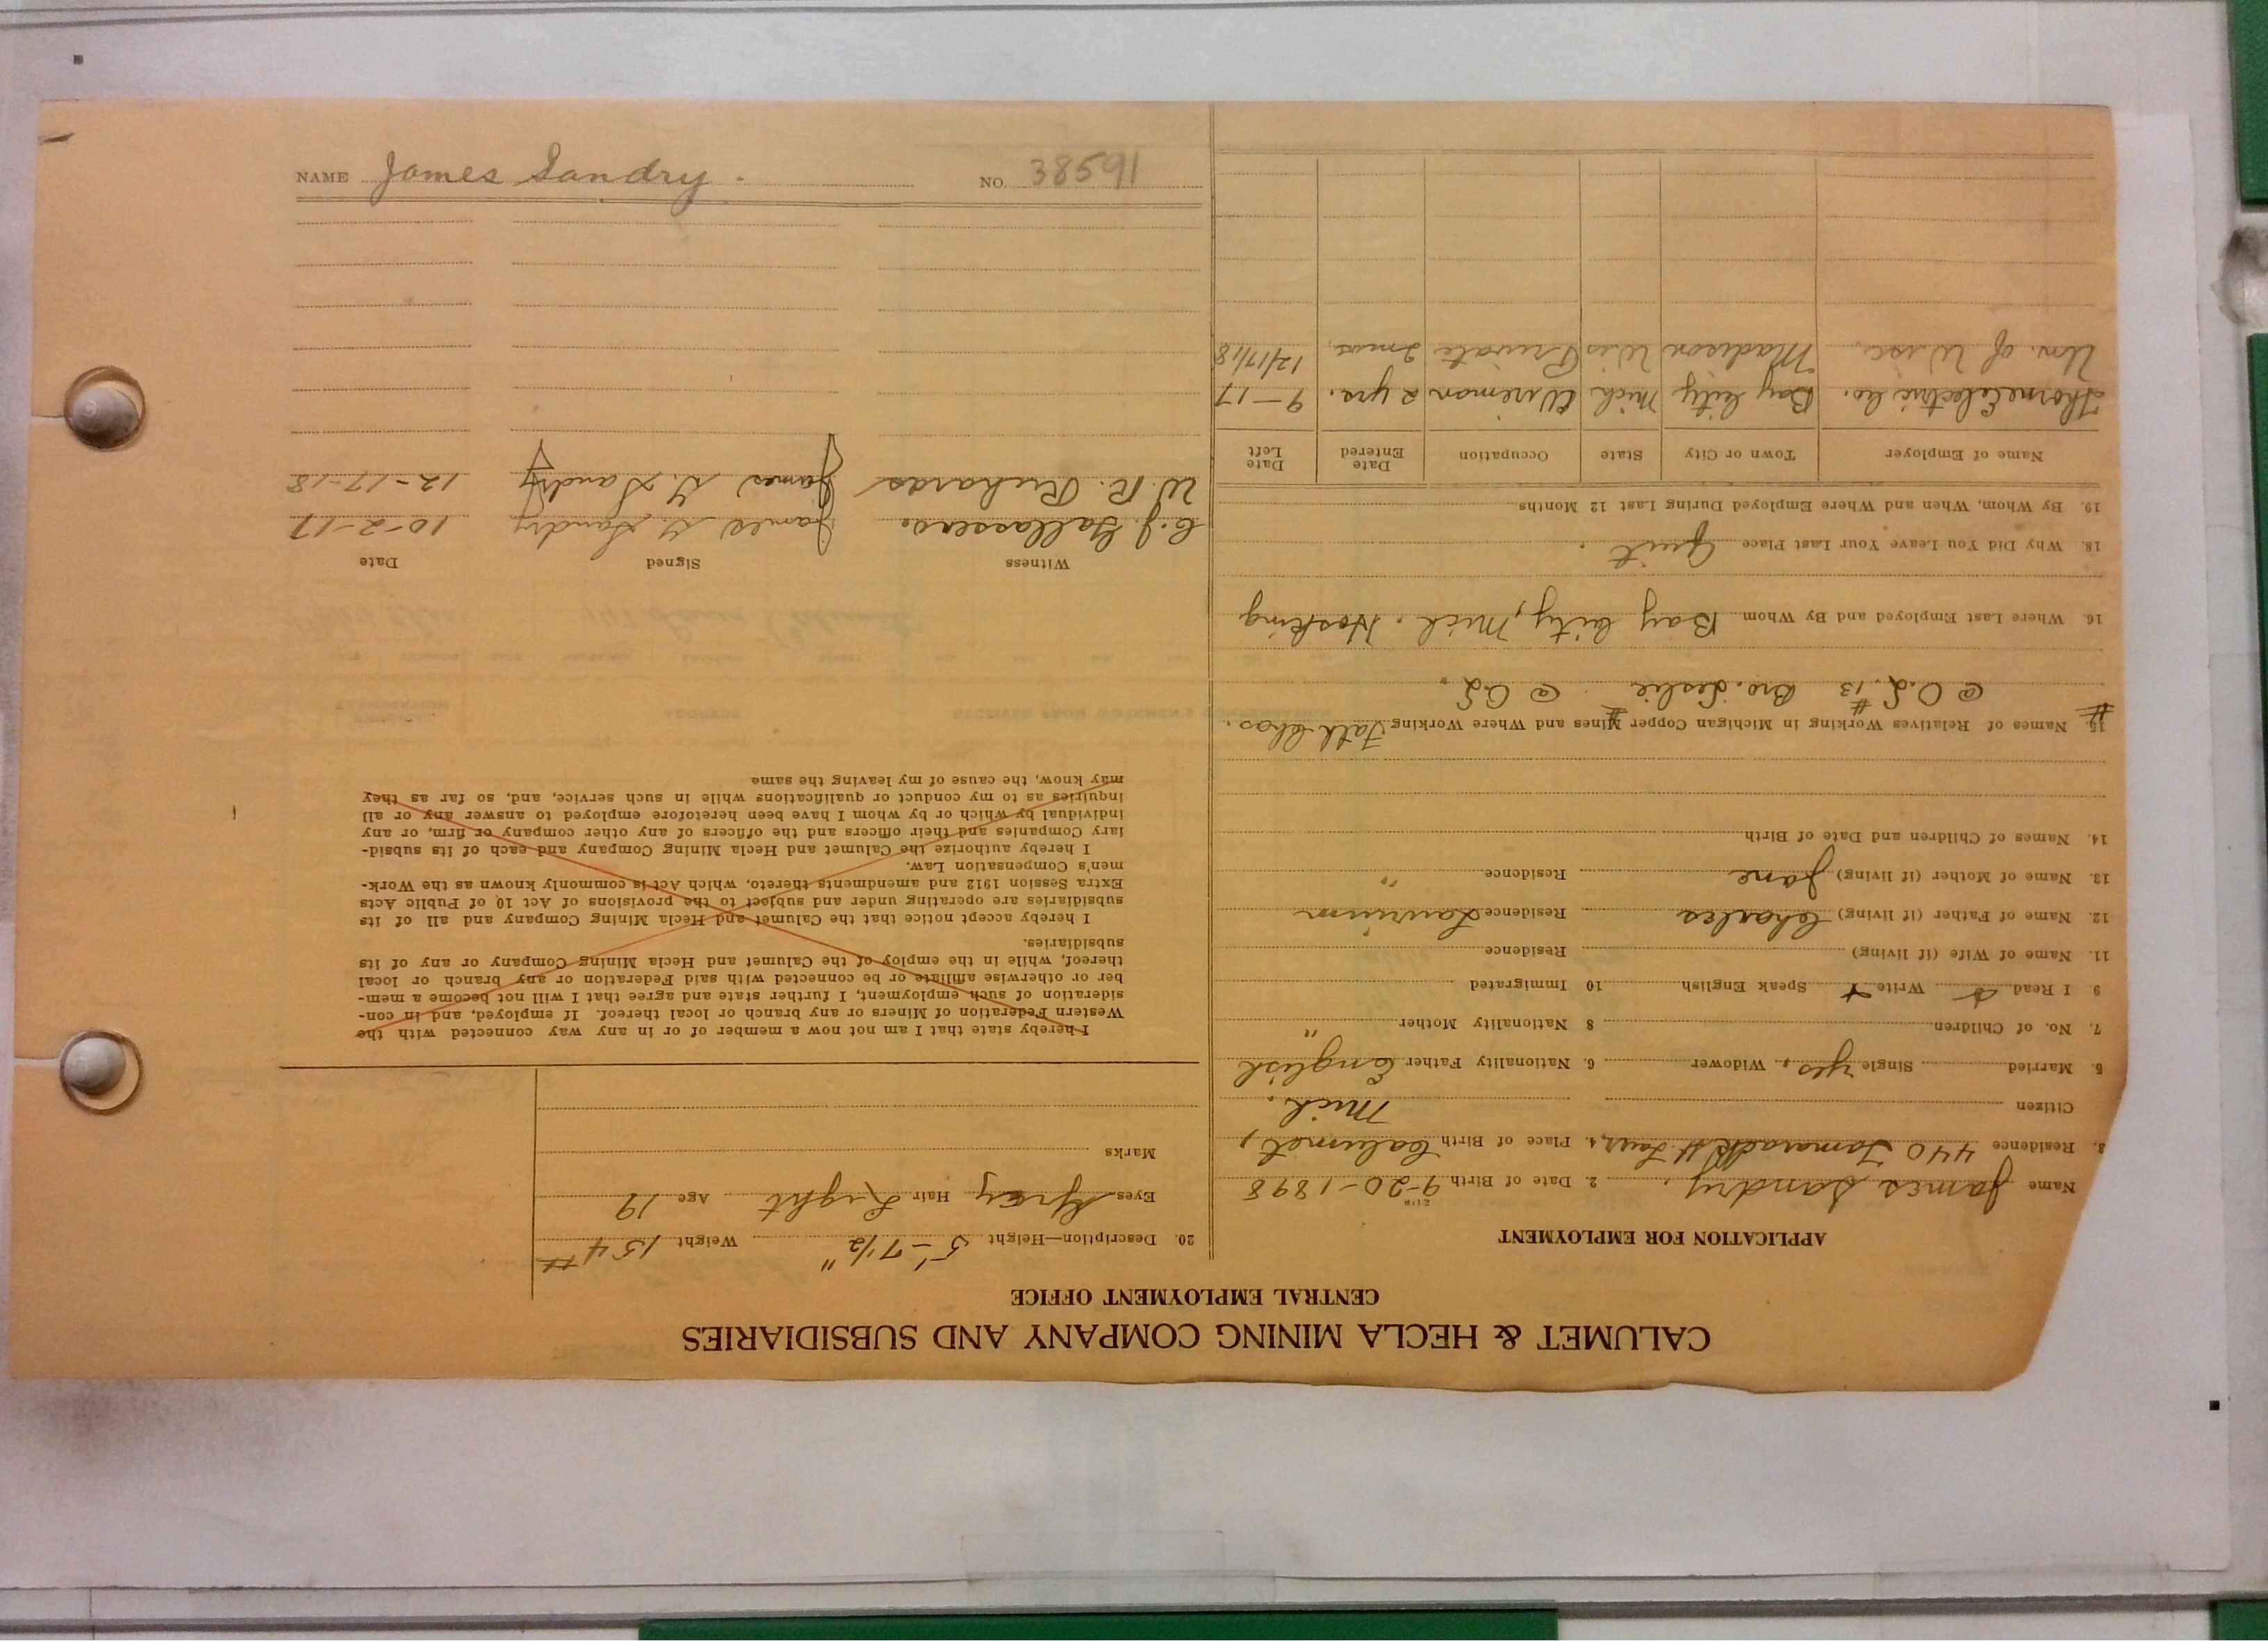 CALUMET & HECLA MINING COMPANY AND SUBSIDIARIES
CENTRAL EMPLOYMENT OFFICE
APPLICATION FOR EMPLOYMENT
Name James Sandry. 2. Date of Birth 9-20-1898
3. Residence 440 Tamarack St Laur, 4. Place of Birth Calumet,
Citizen Mich.
5. Married Single yes, Widower 6. Nationality Father English
7. No. of Children 8 Nationality Mother "
9 I Read Write Speak English 10 Immigrated
11. Name of Wife (if living) Residence
12. Name of Father (if living) Charles Residence Laurium
13. Name of Mother (if living) Jane Residence "
14. Names of Children and Date of Birth
15. Names of Relatives Working in Michigan Copper Mines and Where Working Fath Chas.
@ O.L. #13 Bro. Leslie @ O.L.
16. Where Last Employed and By Whom Bay City, Mich. Hosking
18. Why Did You Leave Your Last Place Quit.
19. By Whom, When and Where Employed During Last 12 Months
Name of Employer Town or City State Occupation Date Entered Date Left
Thorne Electric Co. Bay City Mich Wireman 2 yrs. 9-17
Un. of Wisc. Madison Wis Private 2 mos. 12/17/18
20. Description—Height 5'-7 1/2" Weight 154 #
Eyes Grey Hair Light Age 19
Marks
I hereby state that I am not now a member of or in any way connected with the
Western Federation of Miners or any branch or local thereof. If employed, and in con-
sideration of such employment, I further state and agree that I will not become a mem-
ber or otherwise affiliate or be connected with said Federation or any branch or local
thereof, while in the employ of the Calumet and Hecla Mining Company or any of its
subsidiaries.
I hereby accept notice that the Calumet and Hecla Mining Company and all of its
subsidiaries are operating under and subject to the provisions of Act 10 of Public Acts
Extra Session 1912 and amendments thereto, which Act is commonly known as the Work-
men's Compensation Law.
I hereby authorize the Calumet and Hecla Mining Company and each of its subsid-
iary Companies and their officers and the officers of any other company or firm, or any
individual by which or by whom I have been heretofore employed to answer any or all
inquiries as to my conduct or qualifications while in such service, and, so far as they
may know, the cause of my leaving the same
Witness Signed Date
C. J. Gallassero. James H Sandry 10-2-17
W. R. Richards James H. Sandry 12-17-18
NAME James Sandry. NO. 38591